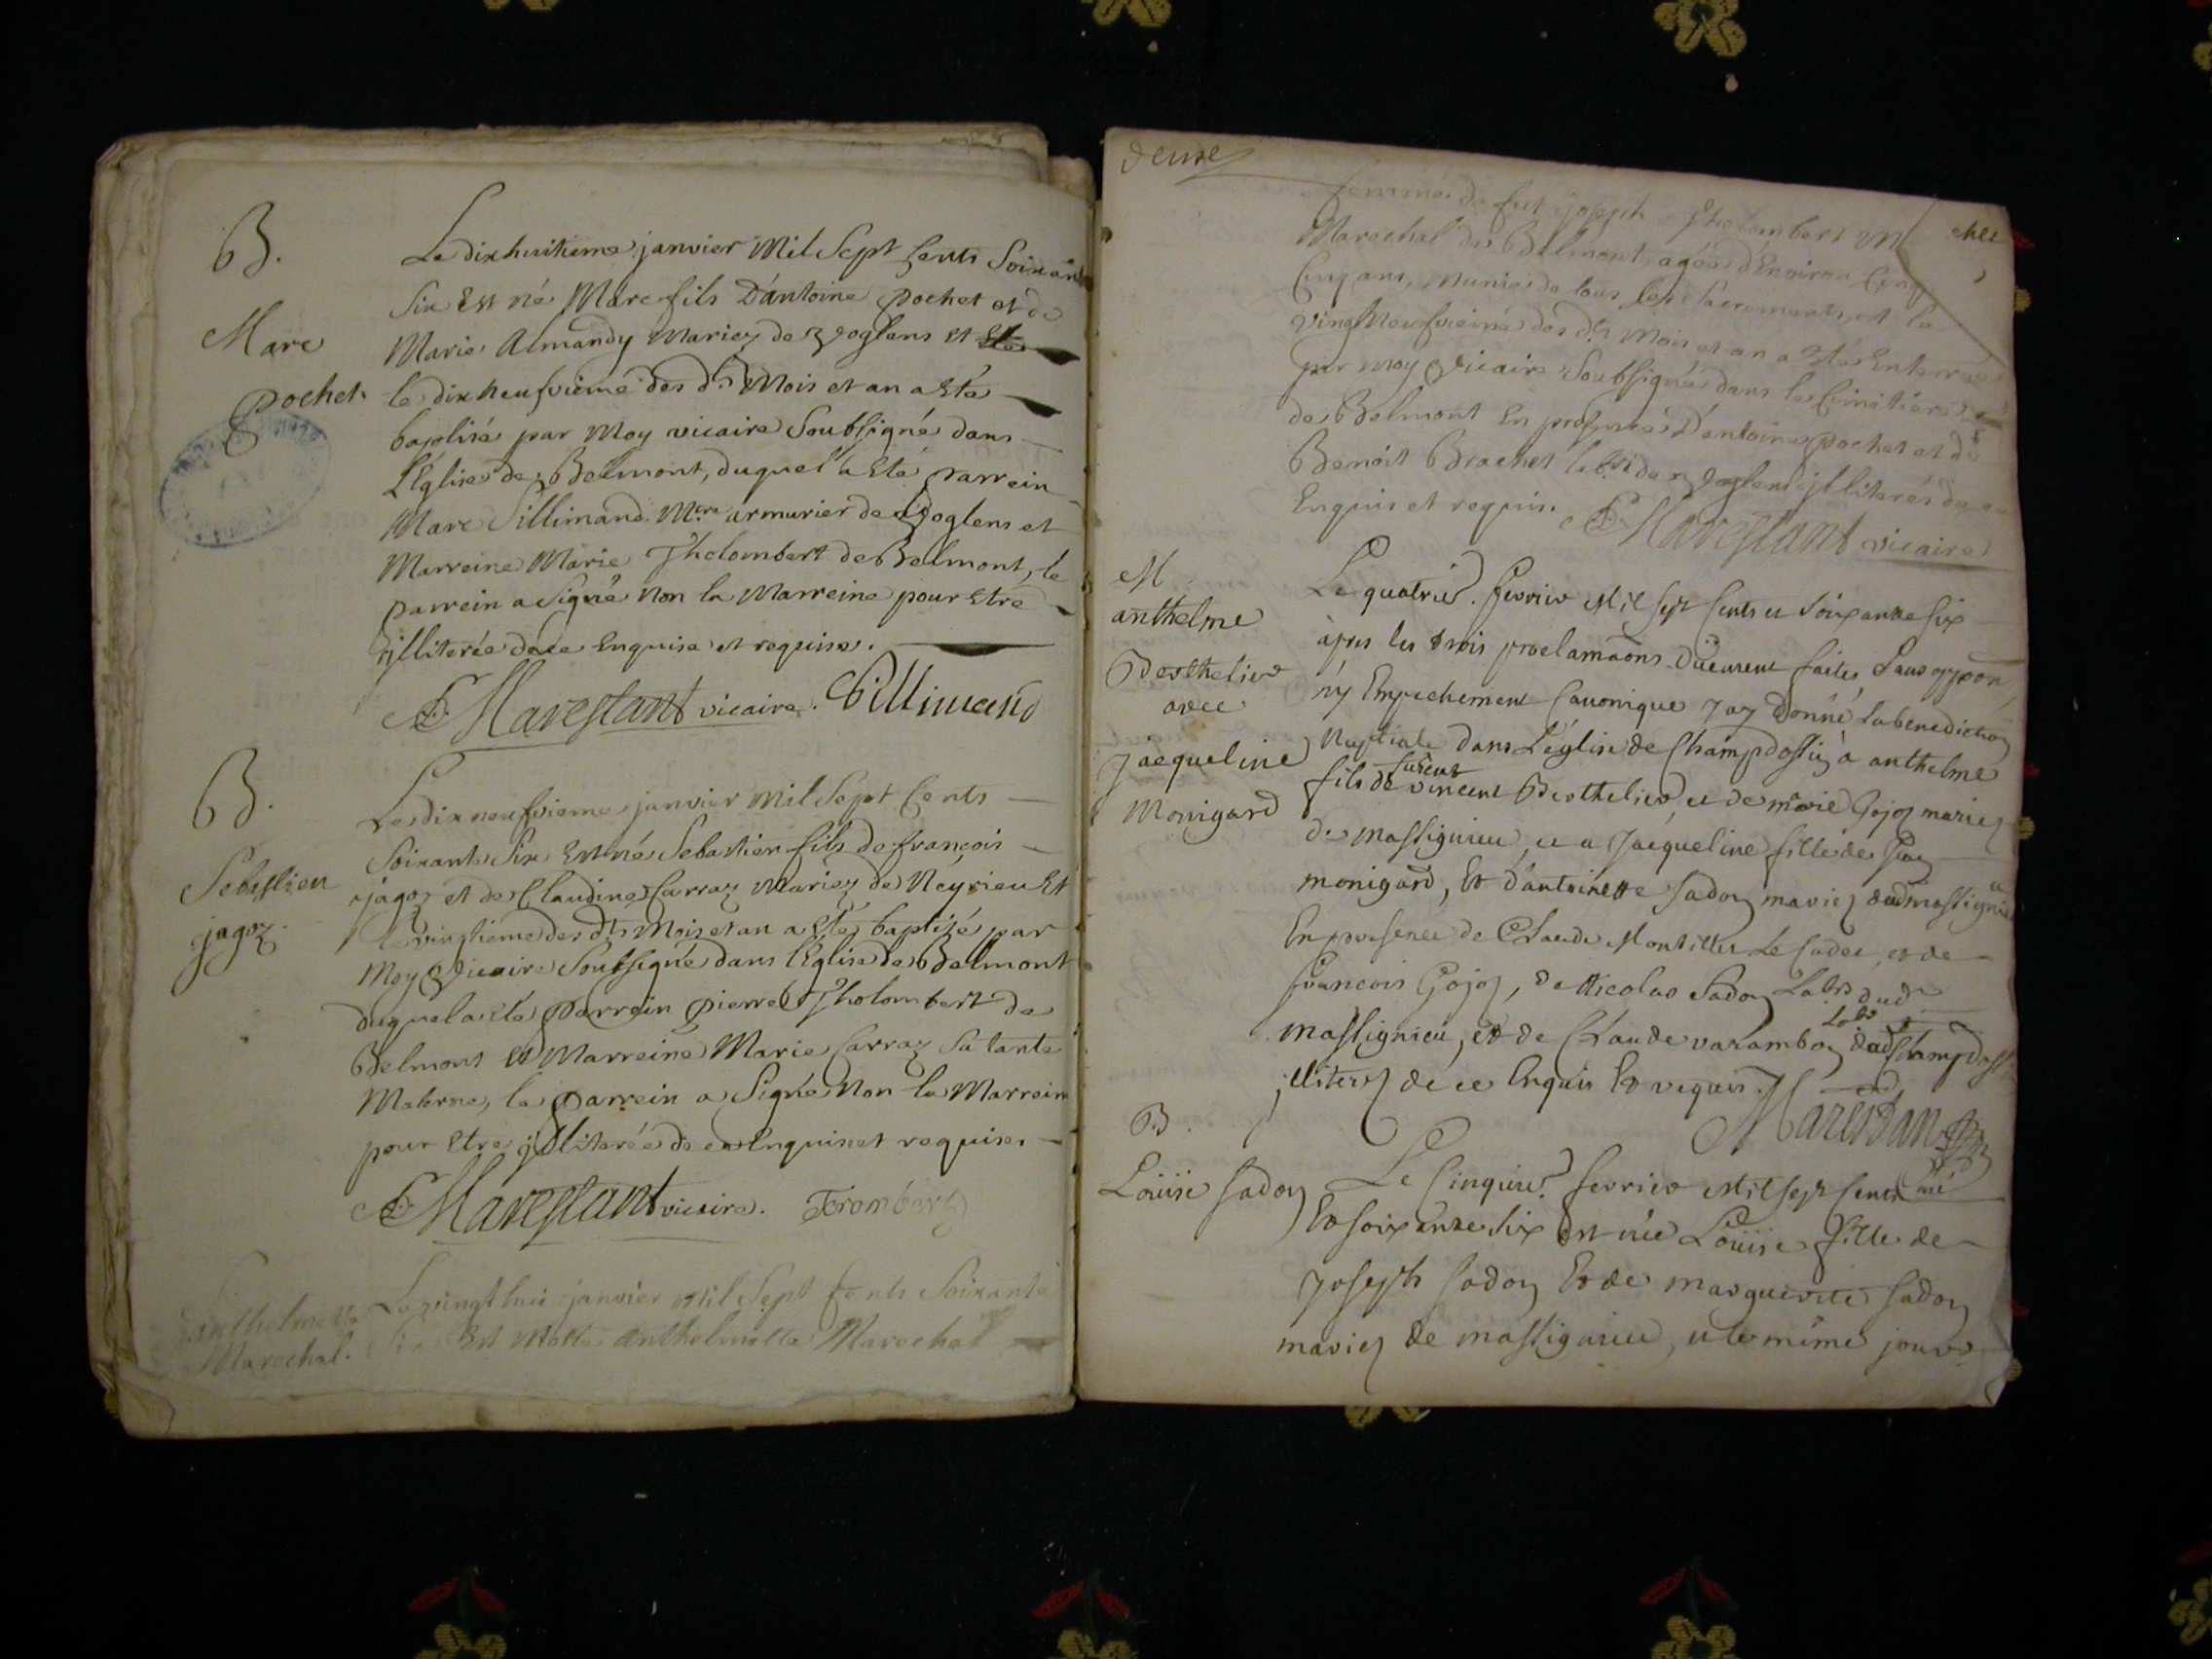 B.
Marc
pochet.
Le dixhuitieme janvier Mil Sept Cents Soixante
Six Est né Marc fils D'antoine pochet et de
Marie Almandy Mariez de Zoglens et
le dix neufvieme des dts Mois et an a Eté
baptisé par Moy vicaire Soubsigné dans
L'Eglise de Belmont, duquel a Eté parrein
Marc Sillimand Mtre armurier de Zoglens et
Marreine Marie Tholombert de Belmont, le
parrein a Signé Non la Marreine pour Etre
illiterée de ce Enquise et requise.
Marestant vicaire. Sillimand
B.
Sebastien
jagoz.
Le dix neufvieme janvier Mil Sept Cents
Soixante Six Est né Sebastien fils de françois
jagoz et de Claudine Carraz Mariez de Neyrieu Et
le vingtieme des dts Mois et an a Eté baptisé par
Moy Vicaire Soubsigné dans l'Eglise de Belmont
duquel a Eté parrein pierre Tholombert de
Belmont et Marreine Marie Carraz Sa tante
Materne, le parrein a Signé Non la Marreine
pour Etre illiterée de ce Enquise et requise.
Marestant vicaire.
anthelmette
Marechal.
Le vingt huit janvier Mil Sept Cents Soixante
Six Est Morte Anthelmette Marechal
deux
femme de fut joseph Tholombert
Marechal de Belmont, agée d'Environ Cinq
Cinq ans, Munie de tous les Sacrements, et le
vingt Neufvieme des dts Mois et an a Eté Enterrée
par Moy Vicaire Soubsigné dans le Cimetiere
de Belmont En presence D'antoine pochet et de
Benoit Brachet labrs de Zoglens illiterés de ce
Enquis et requis.
Marestant vicaire
M
anthelme
Berthelier
avec
Jacqueline
Monigard
Le quatrie. fevrier Mil Sept Cents et Soixante Six
après les trois proclamaõns duëment faites Sans oppõon
ny Empechement Canonique J'ay donné la benediction
Nuptiale dans L'église de Champdossin à anthelme
fils de furent vincent Berthelier, et de marie Gojoz mariez
de massignieu, et a Jacqueline fille de Guy
monigard, Et d'antoinette Sadoz mariez dud massignieu
En presence de Claude Montillet Le Cadet, et de
françois Gojoz, De Nicolas Sadoz Labrs dud
massignieu, et de Claude varamboz Labr dud Champdossin
illiterez de ce Enquis Et requis.
Marestan
B.
Louise Sadoz
Le Cinquie. fevrier Mil Sept Cents
Et Soixante Six Est née Louise fille de
Joseph Sadoz Et de marguerite Sadoz
mariez de massignieu, et le même jour